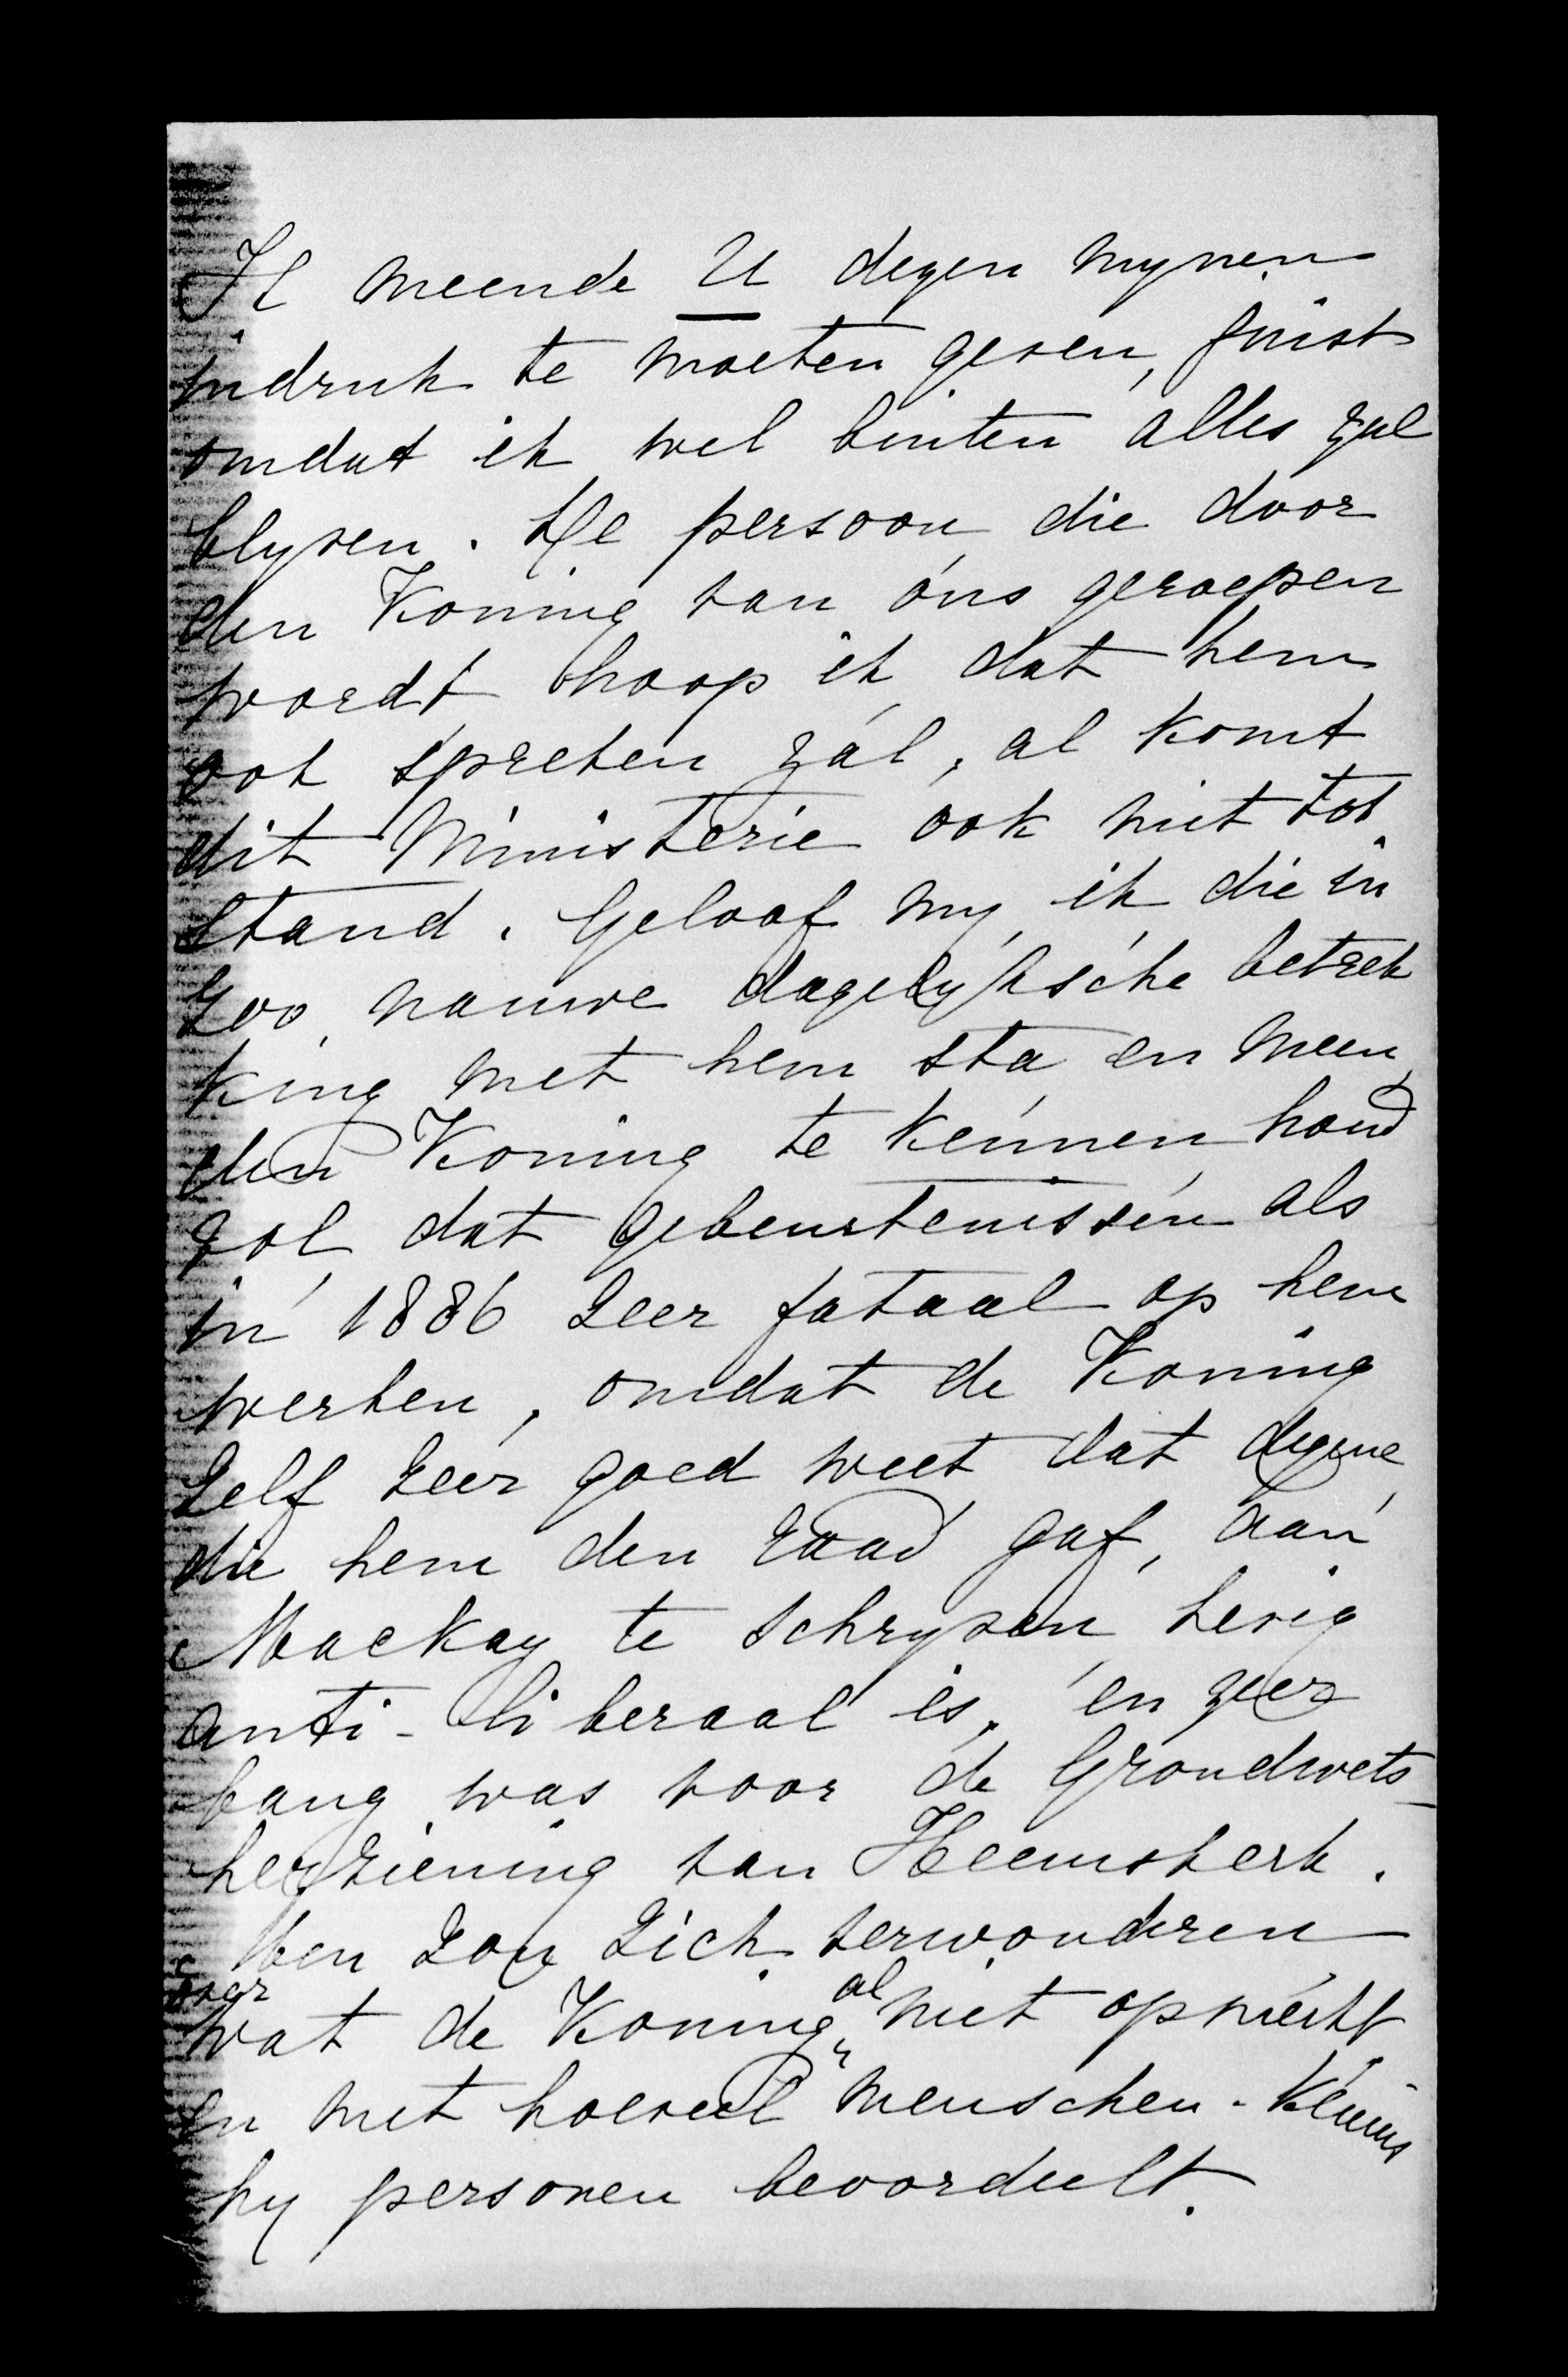 Ik meende U dezen mynen
indruk te moeten geven, juist
omdat ik wel buiten alles zal
blyven. De persoon die door
den Koning van ons geroepen
wordt hoop ik dat hem
ook spreken zal, al komt
dit Ministerie ook niet tot
stand. Geloof my, ik die in
zoo nauwe dagelyksche betrek
king met hem sta en meen
den Koning te kennen houd
vol dat gebeurtenissen als
in 1886 zeer fataal op hem
werken, omdat de Koning
zelf zeer goed weet dat degene
die hem den raad gaf, aan
Mackay te schryven, hevig
anti-liberaal is, en zeer
bang was voor de Grondwets-
herziening van Heemskerk.
Men zou zich verwonderen
over
wat de Koning al niet opmerkt
en met hoeveel menschen-kennis
hy personen beoordeelt.